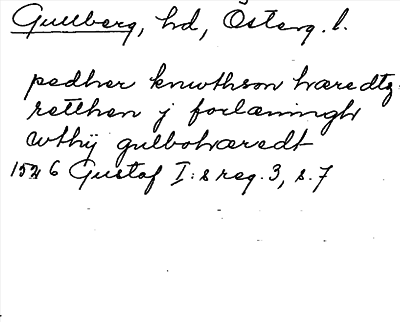 Gullberg, hd, Österg. l.
pedher knwthson hæredtz
retthen j forlæningh
wthij gulbohæredt
1526 Gustaf I:s reg. 3, s. 7